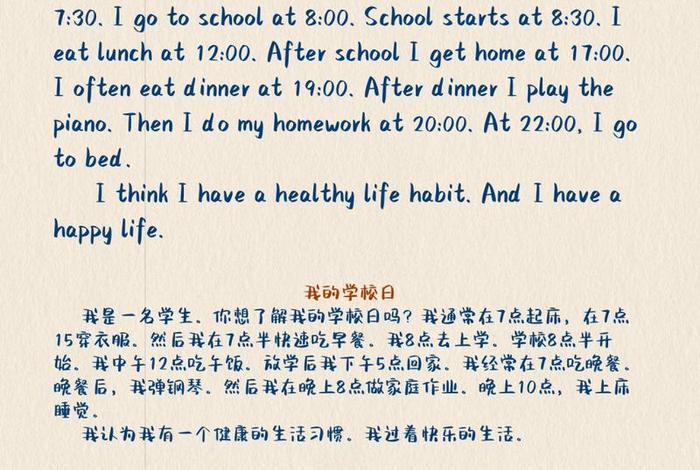 7:30. I go to school at 8:00. School starts at 8:30. I
eat lunch at 12:00. After school I get home at 17:00.
I often eat dinner at 19:00. After dinner I play the
piano. Then I do my homework at 20:00. At 22:00, I go
to bed.
I think I have a healthy life habit. And I have a
happy life.
我的学校日
我是一名学生。你想了解我的学校日吗？我通常在7点起床，在7点
15穿衣服。然后我在7点半快速吃早餐。我8点去上学。学校8点半开
始。我中午12点吃午饭。放学后我下午5点回家。我经常在7点吃晚餐。
晚餐后，我弹钢琴。然后我在晚上8点做家庭作业。晚上10点，我上床
睡觉。
我认为我有一个健康的生活习惯。我过着快乐的生活。